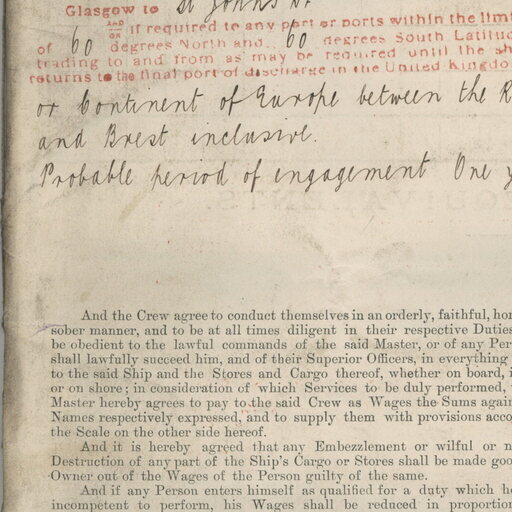 Glasgow to St Johns
AND OR if required to any port or ports within the
of 60 degrees North and 60 degrees South
trading to and from as may be required until the
returns to the final port of discharge in the United
or Continent of Europe between the
and Brest inclusive.
Probable period of engagement One
And the Crew agree to conduct themselves in an orderly, faithful,
sober manner, and to be at all times diligent in their respective Duties
be obedient to the lawful commands of the said Master, or of any
shall lawfully succeed him, and of their Superior Officers, in everything
to the said Ship and the Stores and Cargo thereof, whether on board,
or on shore; in consideration of which Services to be duly performed,
Master hereby agrees to pay to the said Crew as Wages the Sums
Names respectively expressed, and to supply them with provisions
the Scale on the other side hereof.
And it is hereby agreed that any Embezzlement or wilful or
Destruction of any part of the Ship's Cargo or Stores shall be made
Owner out of the Wages of the Person guilty of the same.
And if any Person enters himself as qualified for a duty which
incompetent to perform, his Wages shall be reduced in